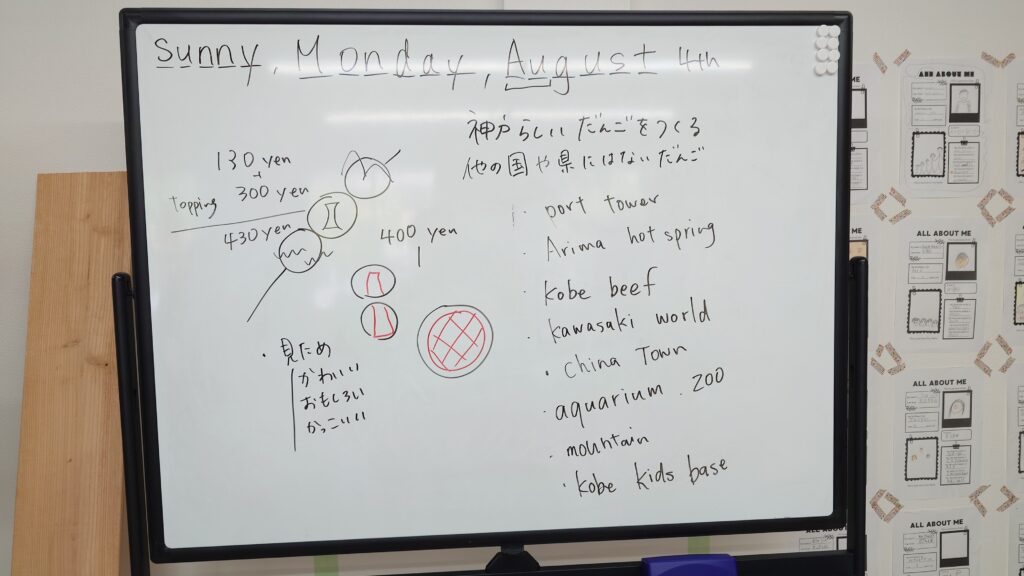 Sunny, Monday, August 4th
神戸らしいだんごをつくる
他の国や県にはないだんご
130 yen
+
topping 300 yen
430 yen
400 yen
・見ため
かわいい
おもしろい
かっこいい
・port tower
・Arima hot spring
・kobe beef
・kawasaki world
・China Town
・aquarium . ZOO
・mountain
・kobe kids base
ALL ABOUT ME
ALL ABOUT ME
ALL ABOUT ME
ALL ABOUT ME